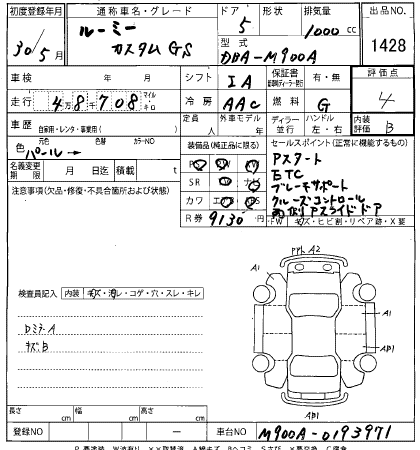 初度登録年月 通称車名・グレード ドア 形状 排気量 出品NO.
30/5月 ルーミー カスタムGS 5 1000cc 1428
型式 DBA-M900A
車検 年 月 シフト IA 保証書 有・無 評価点
走行 4万8千708 マイル キロ 冷房 AAC 燃料 G 4
車歴 自家用・レンタ・事業用( ) 定員 人 外車モデル 年 ディーラー 並行 ハンドル 左・右 内装評価 B
色 元色 色替 カラーNO 装備品(純正品に限る) セールスポイント(正常に機能するもの)
パール→ Pスタート
名義変更期限 月 日迄 積載 t SR ナビ ETC
注意事項(欠品・修復・不具合箇所および状態) カワ エアB ABS ブレーキサポート
クルーズコントロール
R券 9130円 両側Pスライドドア
FW キズ・ヒビ割・リペア跡・X要
検査員記入 内装 キズ・汚レ・コゲ・穴・スレ・キレ
A2
A1
DミラーA A1
キズB AB1
AB1
長さ cm 幅 cm 高さ cm
登録NO ー 車台NO M900A-0193971